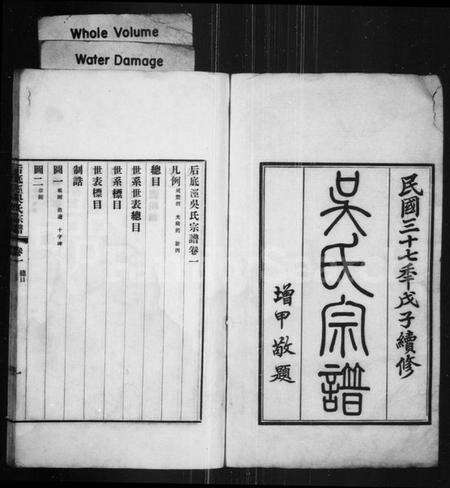 Whole Volume
Water Damage
民國三十七年戊子續修
吳氏宗譜
增甲敬題
后底涇吳氏宗譜卷一
凡例
總目
世系世表總目
世系標目
世表標目
制誥
圖一
圖二
后底涇吳氏宗譜
卷一
總目